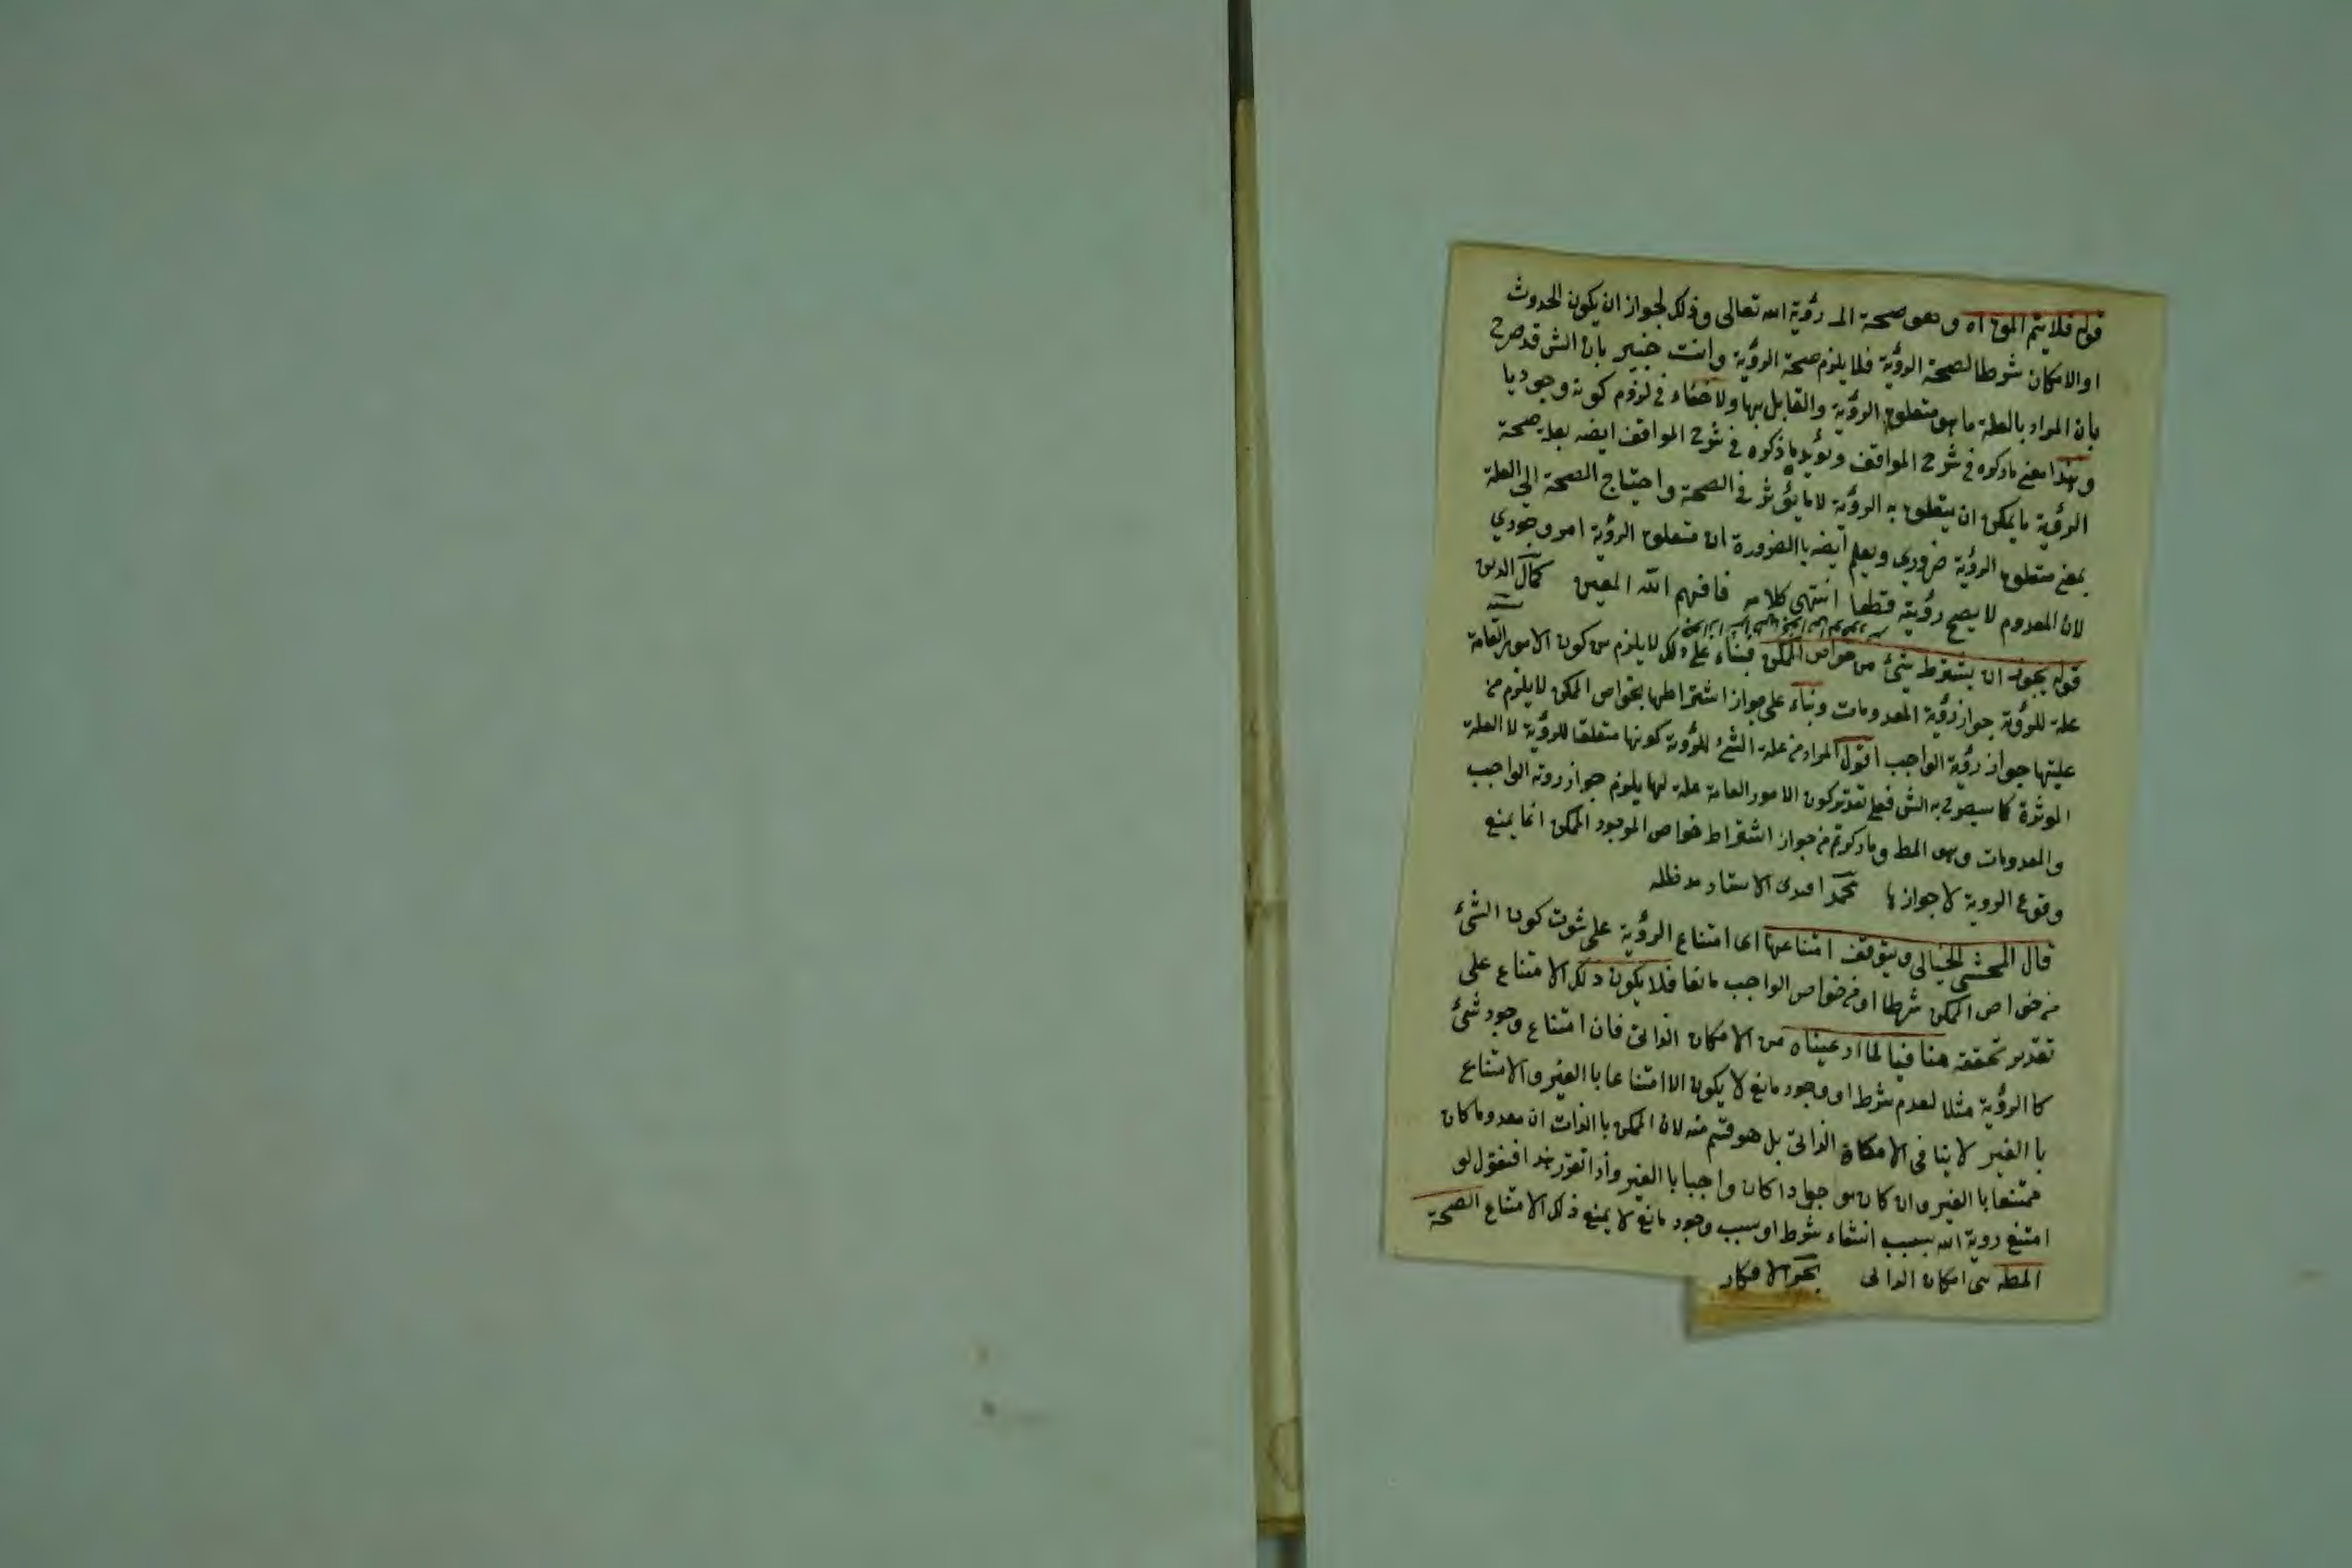 قوله فلا يتم المقص اه وهو صحة الـ رؤية الله تعالى وذلك لجواز ان يكون الحدوث
او الامكان شرطا لصحة الرؤية فلا يلزم صحة الرؤية وانت خبير بان الش قد صرح
بان المراد بالعلة ما هو متعلق الرؤية والقابل بها ولا خفاء في لزوم كونه وجوديا
وهذا معنى ما ذكره في شرح المواقف ويؤيد ما ذكره في شرح المواقف ايضه بعلة صحة
الرؤية ما يمكن ان يتعلق به الرؤية لا ما يؤثر في الصحة واحتياج الصحة الى العلة
بمعنى متعلق الرؤية ضروري ويعلم ايضه بالضرورة ان متعلق الرؤية امر وجودي
لان المعدوم لا يصح رؤيته قطعا انتهى كلامه فافهم الله المعين كمال الدين
قوله يجوز ان يشترط بشئ من خواص الممكن فبناء على ذلك لا يلزم من كون الامور العامة
علة للرؤية جواز رؤية المعدومات وبناء على جواز اشتراطها بخواص الممكن لا يلزم من
عليتها جواز رؤية الواجب اقول المراد من علة الشئ للرؤية كونها متعلقا للرؤية لا العلة
الموثرة كما سيصرح به الش فعلى تقدير كون الامور العامة علة لها يلزم جواز روية الواجب
والمعدومات وهو المط وما ذكرتم من جواز اشتراط خواص الموجود الممكن انما يمنع
وقوع الروية لا جوازها محمد افندى الاستاد مد ظله
قال المحشى الخيالى ويتوقف امتناعها اى امتناع الرؤية على ثبوت كون الشئ
من خواص الممكن شرطا او من خواص الواجب مانعا فلا يكون ذلك الامتناع على
تقدير تحققه منافيا لما ادعيناه من الامكان الذاتى فان امتناع وجود شئ
كا الرؤية مثلا لعدم شرط او وجود مانع لا يكون الا امتناعا با الغير والامتناع
با الغير لا ينافى الامكان الذاتى بل هو قسم منه لان الممكن با الذات ان معدوما كان
ممتنعا با الغير وان كان موجودا كان واجبا با الغير واذا تقرر هذا فنقول لو
امتنع روية الله بسبب انتفاء شرط او سبب وجود مانع لا يمنع ذلك الامتناع الصحة
المط امكان الذاتى بحر الافكار